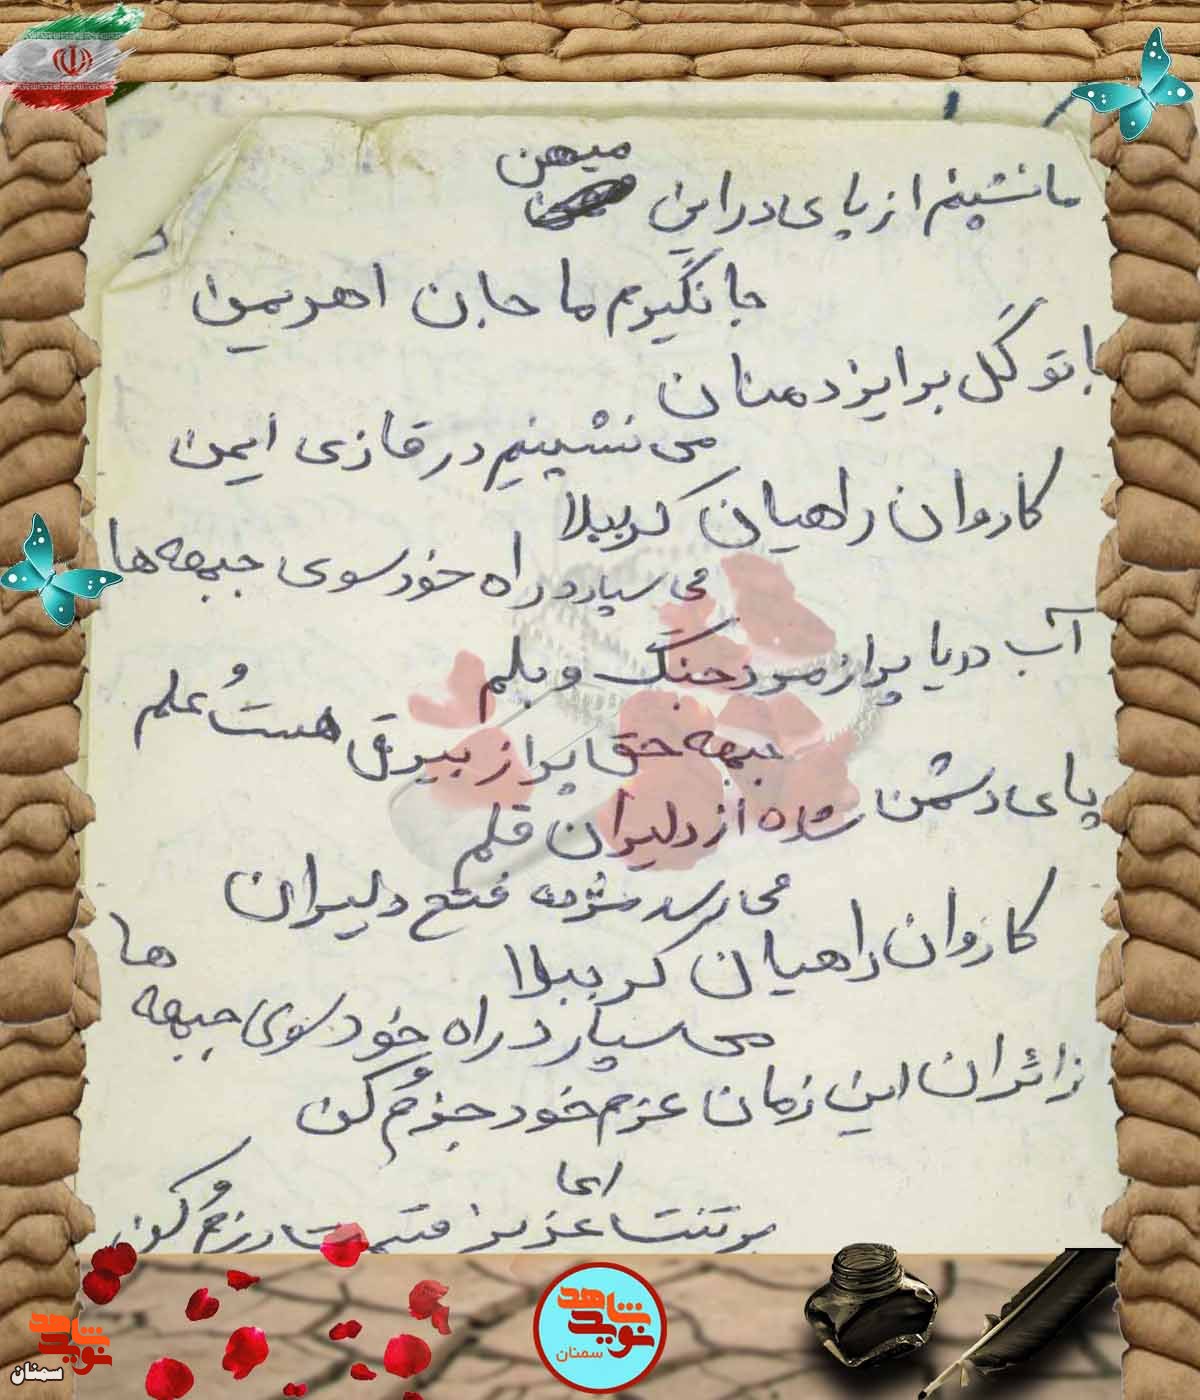 میهن
ما نشینم از پای در این
جا نگیرم ما جان اهریمن
با تو گل بر ایزد منان
می نشینیم در قازی ایمن
کاروان راهیان کربلا
می سپارد راه خود سوی جبهه ها
آب دریا پر از مرد جنگ و بلم
جبهه حق پر از بیرق هست و علم
پای دشمن شده از دلیران قلم
می رسد مژده فتح دلیران
کاروان راهیان کربلا
ها
می سپارد راه خود سوی جبهه
زائران این زمان عزم خود جزم کن
ای
بر تنت عزیز رزم کن
نوید شاهد
سمنان
نوید شاهد
سمنان